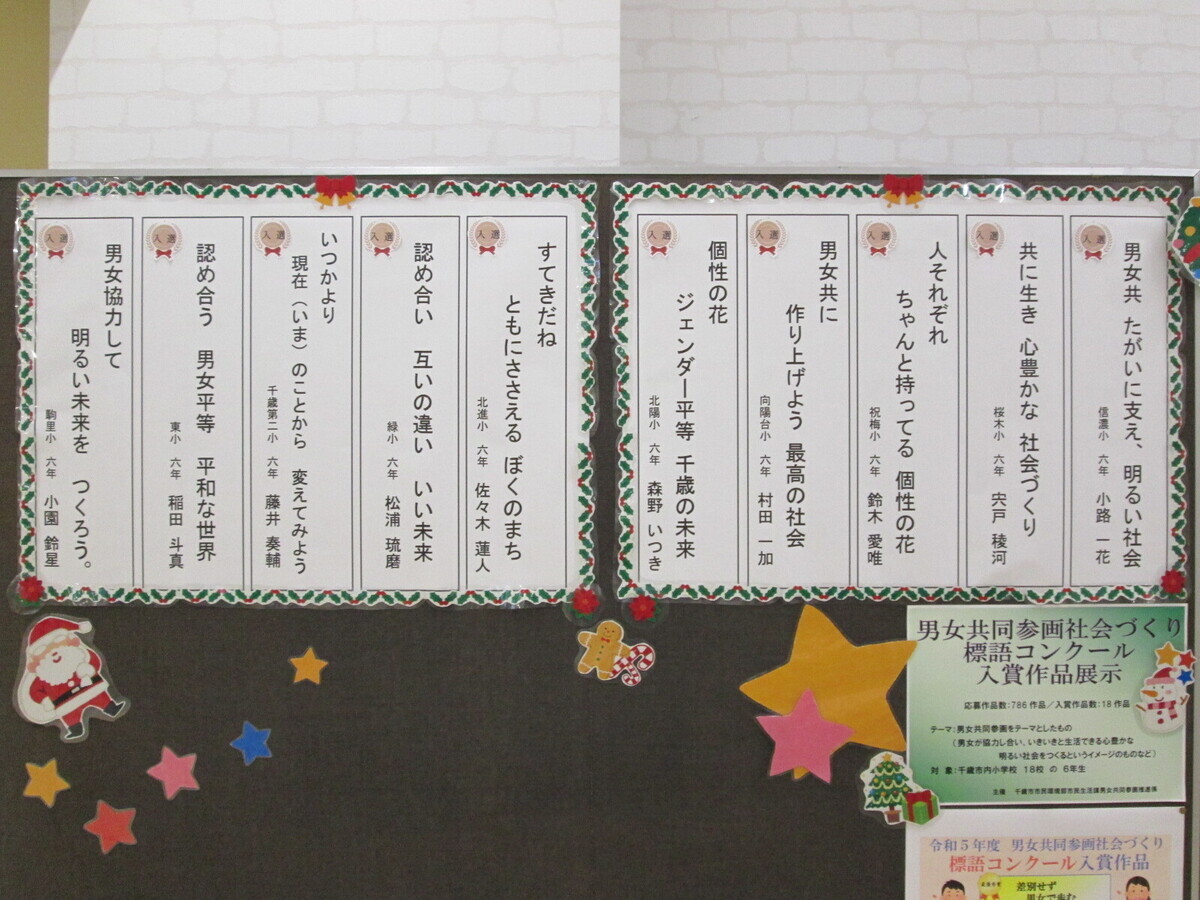 入選
男女共 たがいに支え、明るい社会
信濃小 六年 小路 一花
入選
共に生き 心豊かな 社会づくり
桜木小 六年 宍戸 稜河
入選
人それぞれ
ちゃんと持ってる 個性の花
祝梅小 六年 鈴木 愛唯
入選
男女共に
作り上げよう 最高の社会
向陽台小 六年 村田 一加
入選
個性の花
ジェンダー平等 千歳の未来
北陽小 六年 森野 いつき
入選
すてきだね
ともにささえる ぼくのまち
北進小 六年 佐々木 蓮人
入選
認め合い 互いの違い いい未来
緑小 六年 松浦 琉磨
入選
いつかより
現在(いま)のことから 変えてみよう
千歳第二小 六年 藤井 奏輔
入選
認め合う 男女平等 平和な世界
東小 六年 稲田 斗真
入選
男女協力して
明るい未来を つくろう。
駒里小 六年 小園 鈴星
男女共同参画社会づくり
標語コンクール
入賞作品展示
応募作品数:786作品/入賞作品数:18作品
テーマ:男女共同参画をテーマとしたもの
(男女が協力し合い、いきいきと生活できる心豊かな
明るい社会をつくるというイメージのものなど)
対 象:千歳市内小学校 18校 の 6年生
主催 千歳市市民環境部市民生活課男女共同参画推進係
令和5年度 男女共同参画社会づくり
標語コンクール入賞作品
差別せず
男女で歩む